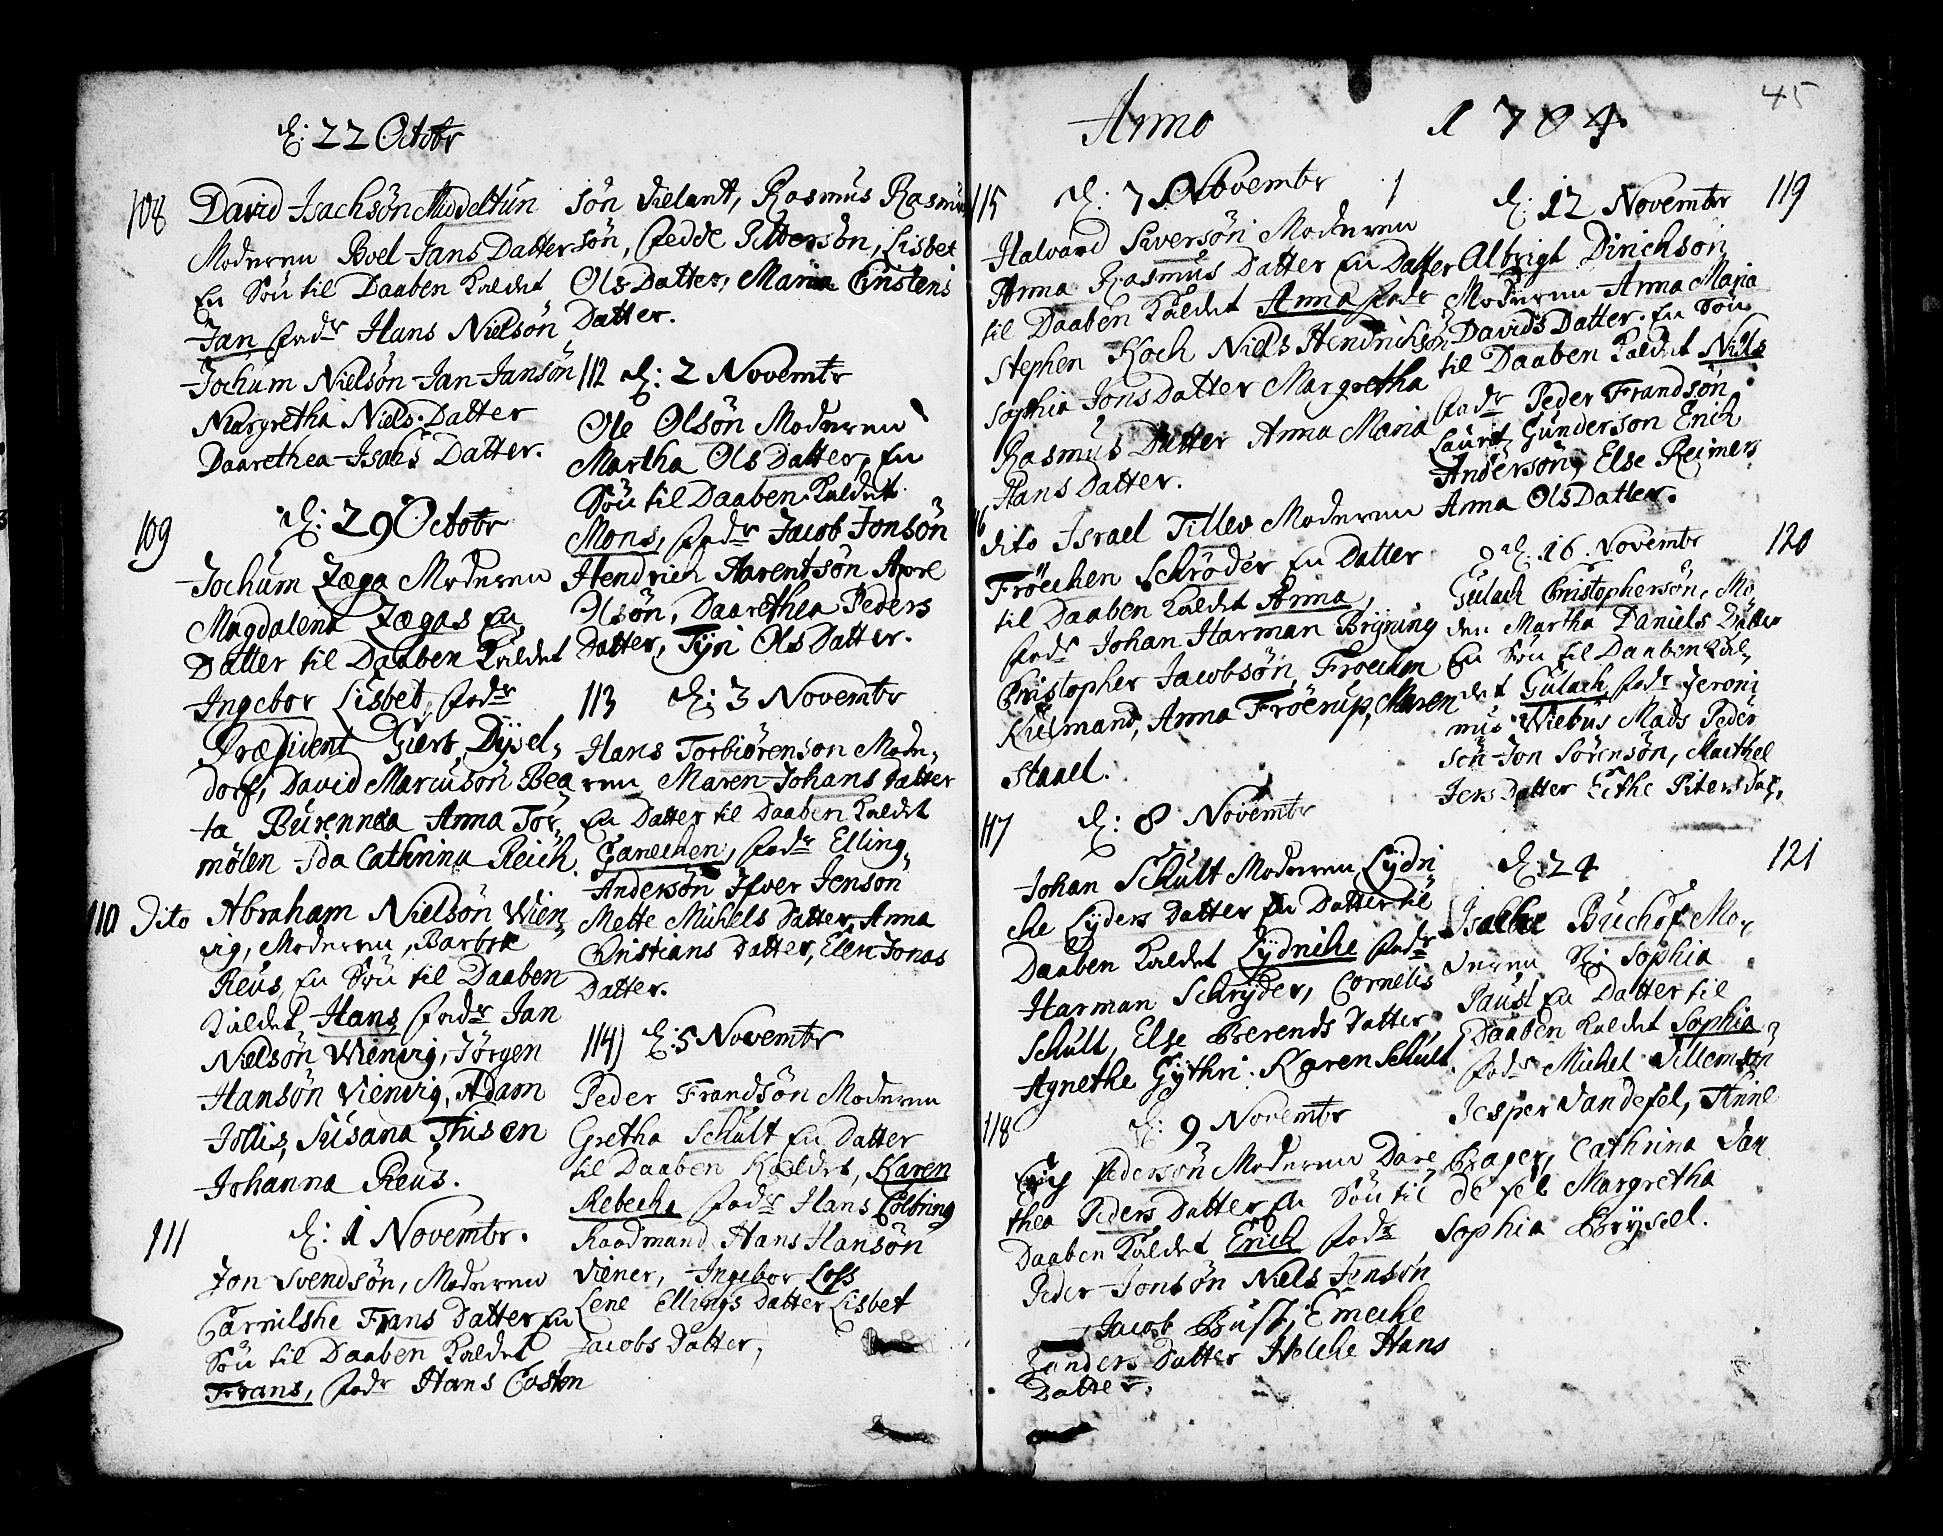 d: 22 Octobr
108
David Jachsön Middeltun
Moderen Boel Jans Datter
En Sön til Daaben Kaldet
Jan fadr Hans Nielsön
Jochum Nielsön Jan Jansön
Margretha Niels Datter
Daarethea Isahs Datter.
109
d: 29 Octobr
Jochum Zæga Moderen
Magdalena Zægas En
Datter til Daaben Kaldet
Ingebor Lisbet, fadr
Præsident Giert Dysel,
dorf, David Marcusön Bea
ta Burennea Anna Tor,
mölen Ida Cathrina Reich.
110 Dito Abraham Nielsön Wien,
vig, Moderen, Barbra
Reus En Sön til Daaben
Kaldet, Hans fadr Jan
Nielsön Wienvig, Jörgen
Hansön Vienvig, Adam
Jollis, Susana Thisen
Johanna Reus.
111
d: 1 Novembr.
Jon Svendsön, Moderen
Carnilshe Frans Datter En
Sön til Daaben Kaldet
Frans, fadr Hans Costen
sön Vielant, Rasmus Rasmu
sön, Fedde Petersön, Lisbet
Ols Datter, Maria Christens
Datter.
112 d: 2 Novembr
Ole Olsön Moderen
Martha Ols Datter, En
Sön til Daaben Kaldet
Mons, fadr Jacob Jonsön
Hendrich Aarentsön Apre
Olsön, Daarethea Peders
Datter, Tyri Ols Datter.
113 d: 3 Novembr
Hans Torbiörenson Mode,
ren Maren Johans Datter
En Datter til Daaben Kaldet
Ganechen, fadr Elling,
Andersön Ifver Jenson
Mette Michels Datter, Anna
Christians Datter, Elen Jonas
Datter.
114) d: 5 Novembr
Peder Frandsön Moderen
Gretha Schult En Datter
til Daaben Kaldet, Karen
Rebecha fadr Hans Colbring
Raadmand Hans Hansön
Viener, Ingebor Loss
Lene Ellings Datter Lisbet
Jacobs Datter,
45
Anno 1704.
115
d: 7 Novembr
Halvard Siversön Moderen
Anna Rasmus Datter En Datter
til Daaben Kaldet Anna fadr
Stephen Koch Niels Hendrichsön
Sophia Jons Datter Margretha
Rasmus Datter Anna Maria
Hans Datter.
16
dito Israel Tillev Moderen
Fröechen Schröder En Datter
til Daaben Kaldet Anna,
fadr Johan Harman Bryning
Christopher Jacobsön, Froechen
Kulmand, Anna Fröerup, Maren
Stanel.
117
d: 8 Novembr
Johan Schult Moderen Lydri
che Lyders Datter En Datter til
Daaben Kaldet Lydriche fadr
Harman Schryder, Cornelis
Schult, Else Berends Datter,
Agnethe Gythri. Karen Schult.
118
d: 9 Novembr
Erich Pedersön Moderen Dare
thea Peders Datter En Sön til
Daaben Kaldet Erich fadr
Peder Jonsön Niels Jensön
Jacob Bust, Emeche
Zanders Datter Helche Hans
Datter.
119
d: 12 Novembr
Albrigt Dirichson
Moderen Anna Maria
Davids Datter. En Sön
til Daaben Kaldet Niels
fadr Peder Frandsön
Laurit Gunderson Erich
Andersön, Else Reimers
Anna Ols Datter.
120
d. 16. Novembr
Gulach Christophersön, Mo,
den Martha Daniels Datter
En Sön til Daaben Kal,
det Gulach fadr Jeroni
mus Wiebus Mads Peder
sön Jon Sörensön, Marthel
Jers Datter Eithe Piters Dat,
121
d: 24
Isache Buchof Mo,
deren Sophia
Paust En Datter til
Daaben Kaldet Sophia
fadr Michel Villemsön
Jesper Vandefel, Thine
Brager, Cathrina Van
de fel Margretha
Sophia Brysel.